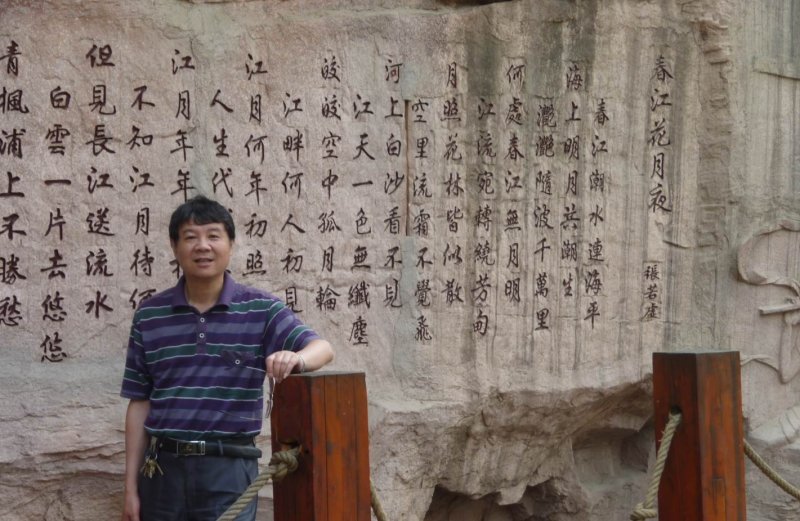 春江花月夜
張若虛
春江潮水連海平
海上明月共潮生
灩灩隨波千萬里
何處春江無月明
江流宛轉繞芳甸
月照花林皆似散
空里流霜不覺飛
河上白沙看不見
江天一色無纖塵
皎皎空中孤月輪
江畔何人初見
江月何年初照
人生代
江月年年
不知江月待何
但見長江送流水
白雲一片去悠悠
青楓浦上不勝愁